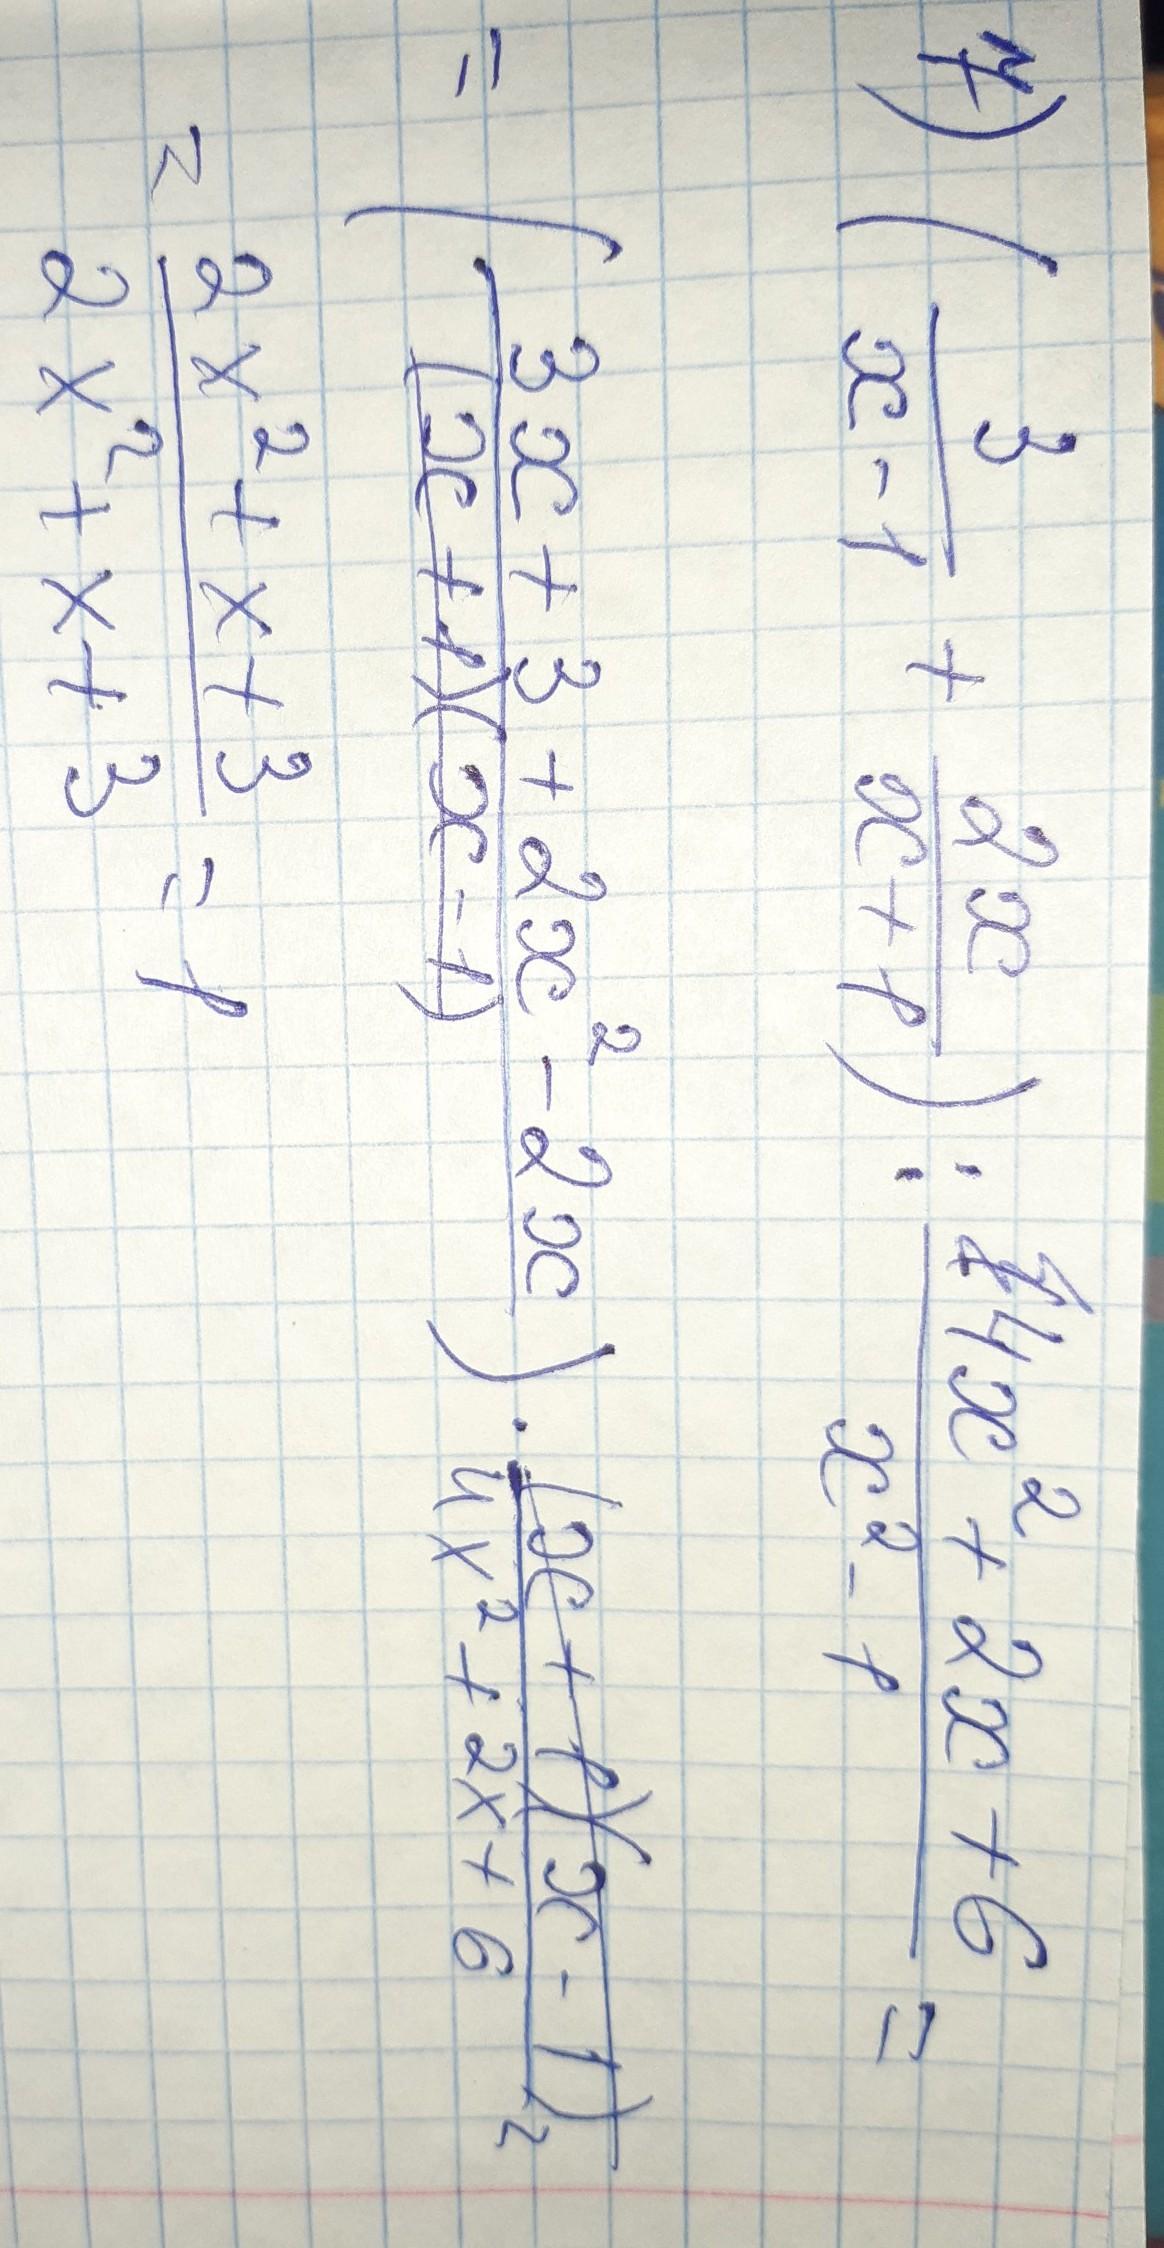 7) (3/(x-1) + 2x/(x+1)) : (4x² + 2x + 6)/(x² - 1) =
= ((3x + 3 + 2x² - 2x)/((x+1)(x-1))) · ((x+1)(x-1))/(4x² + 2x + 6) =
= (2x² + x + 3)/(2x² + x + 3) = 1